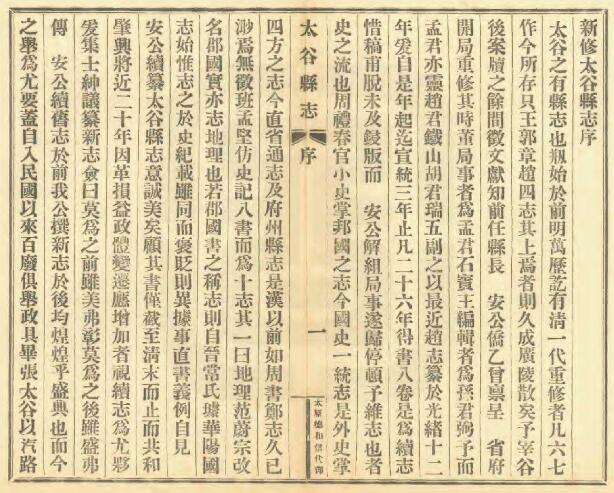 新修太谷縣志序
太谷之有縣志也剏始於前明萬歷訖有清一代重修者凡六七
作今所存只王郭章趙四志其上焉者則久成廣陵散矣予宰谷
後案牘之餘間徵文獻知前任縣長　安公僑乙曾稟呈　省府
開局重修其時董局事者為孟君石寶王編輯者為孫君弼予而
孟君亦靈趙君鐵山胡君瑞五副之以最近趙志纂於光緒十二
年爰自是年起迄宣統三年止凡二十六年得書八卷是為續志
惜稿甫脫未及鋟版而　安公解組局事遂歸停頓予維志也者
史之流也周禮春官小史掌邦國之志今國史一統志是外史掌
太谷縣志　序　一
太原德和信代印
四方之志今直省通志及府州縣志是漢以前如周書鄭志久已
渺焉無徵班孟堅仿史記八書而為十志其一曰地理范蔚宗改
名郡國實亦志地理也若郡國書之稱志則自晉常氏璩華陽國
志始惟志之於史紀載雖同而褒貶則異據事直書義例自見
安公續纂太谷縣志意誠美矣顧其書僅截至清末而止而共和
肇興將近二十年因革損益政體變遷應增加者視續志為尤夥
爰集士紳議纂新志僉曰莫為之前雖美弗彰莫為之後雖盛弗
傳　安公續舊志於前我公撰新志於後均煌煌乎盛典也而今
之舉為尤要蓋自入民國以來百廢俱舉政具畢張太谷以汽路